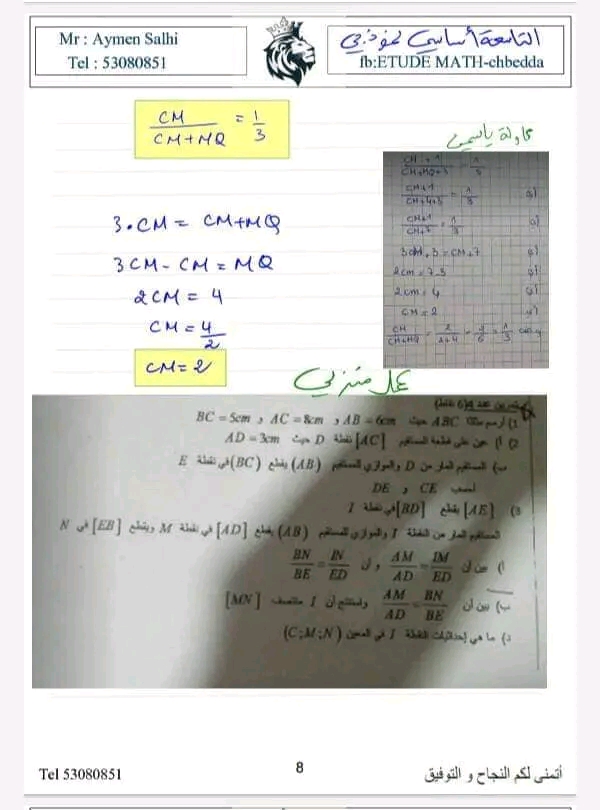 Mr : Aymen Salhi
Tel : 53080851
التاسعة أساسي نموذجي
fb:ETUDE MATH-chbedda
CM / CM+MQ = 1/3
محاولة ياسمين
3 . CM = CM+MQ
3CM - CM = MQ
2CM = 4
CM = 4/2
CM = 2
CM+1 / CM+MQ+3 = 1/3
أي CM+1 / CM+4+3 = 1/3
أي CM+1 / CM+7 = 1/3
أي 3CM+3 = CM+7
أي 2cm = 7-3
أي 2cm = 4
أي CM = 2
CM / CM+MQ = 2 / 2+4 = 2/6 = 1/3
عمل منزلي
تمرين عدد 4 (6 نقاط)
1) أرسم مثلثا ABC حيث AB = 6cm و AC = 8cm و BC = 5cm
2) أ) عين على قطعة المستقيم [AC] نقطة D حيث AD = 3cm
ب) المستقيم المار من D والموازي للمستقيم (AB) يقطع (BC) في نقطة E
احسب CE و DE
3) [AE] يقطع [BD] في نقطة I
المستقيم المار من النقطة I والموازي للمستقيم (AB) يقطع [AD] في نقطة M ويقطع [EB] في N
أ) بين أن AM/AD = IM/ED و أن BN/BE = IN/ED
ب) بين أن AM/AD = BN/BE واستنتج أن I منتصف [MN]
د) ما هي إحداثيات النقطة I في المعين (C;M;N)
Tel 53080851
8
أتمنى لكم النجاح و التوفيق